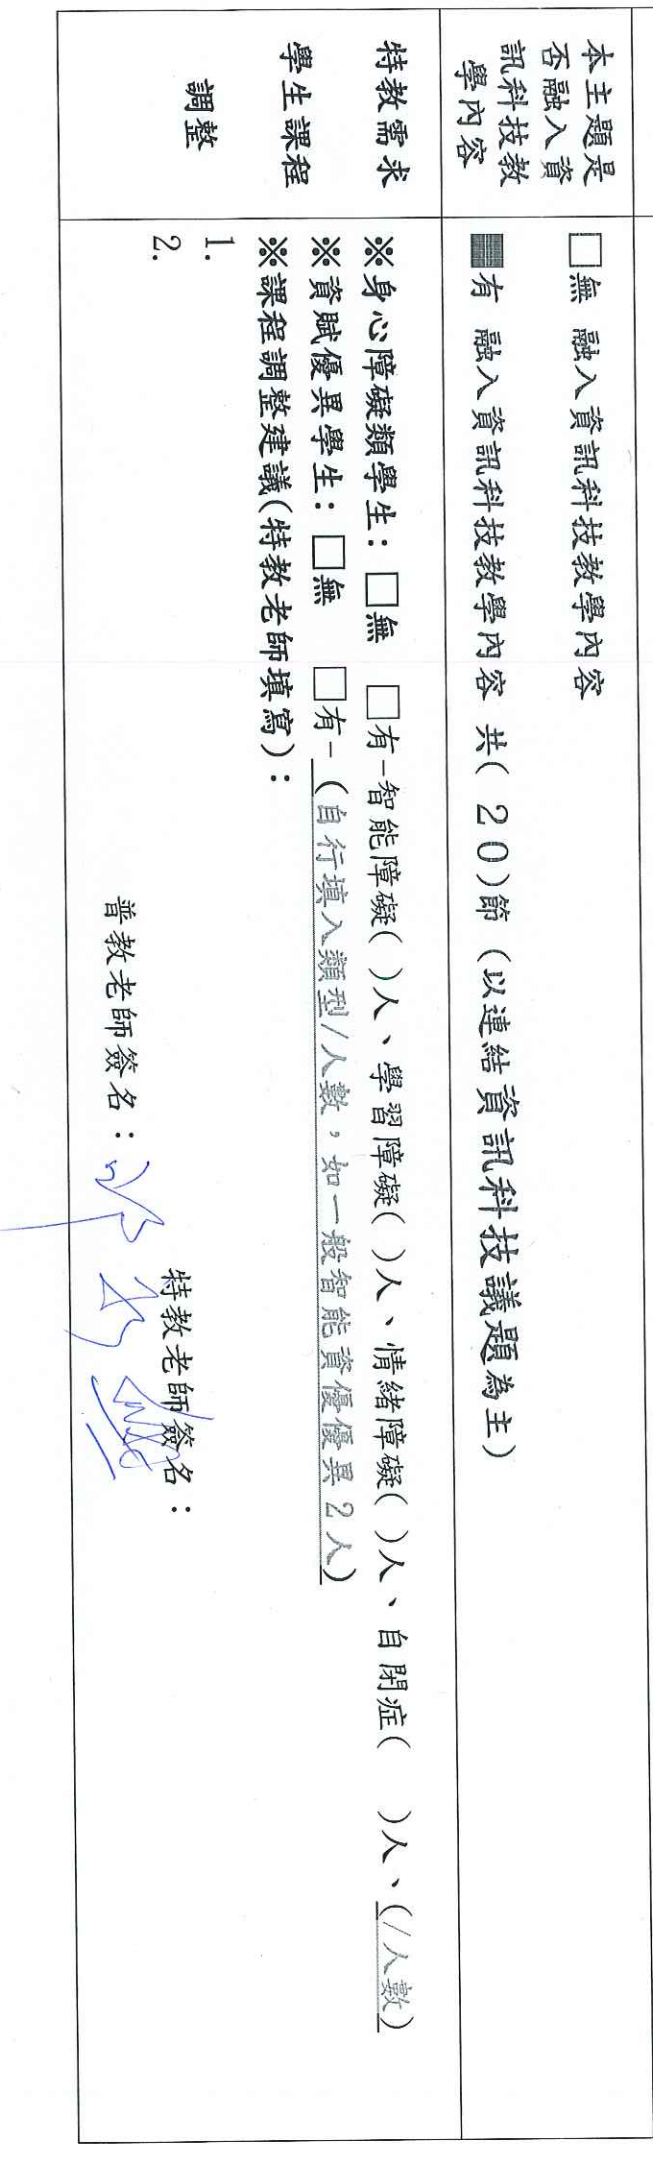 本主題是
否融入資
訊科技教
學內容
□無 融入資訊科技教學內容
■有 融入資訊科技教學內容 共( 20)節 (以連結資訊科技議題為主)
特教需求
學生課程
調整
※身心障礙類學生：□無 □有-智能障礙( )人、學習障礙( )人、情緒障礙( )人、自閉症( )人、(/人數)
※資賦優異學生：□無 □有-(自行填入類型/人數，如一般智能資優優異2人)
※課程調整建議(特教老師填寫)：
1.
2.
特教老師簽名：
普教老師簽名：